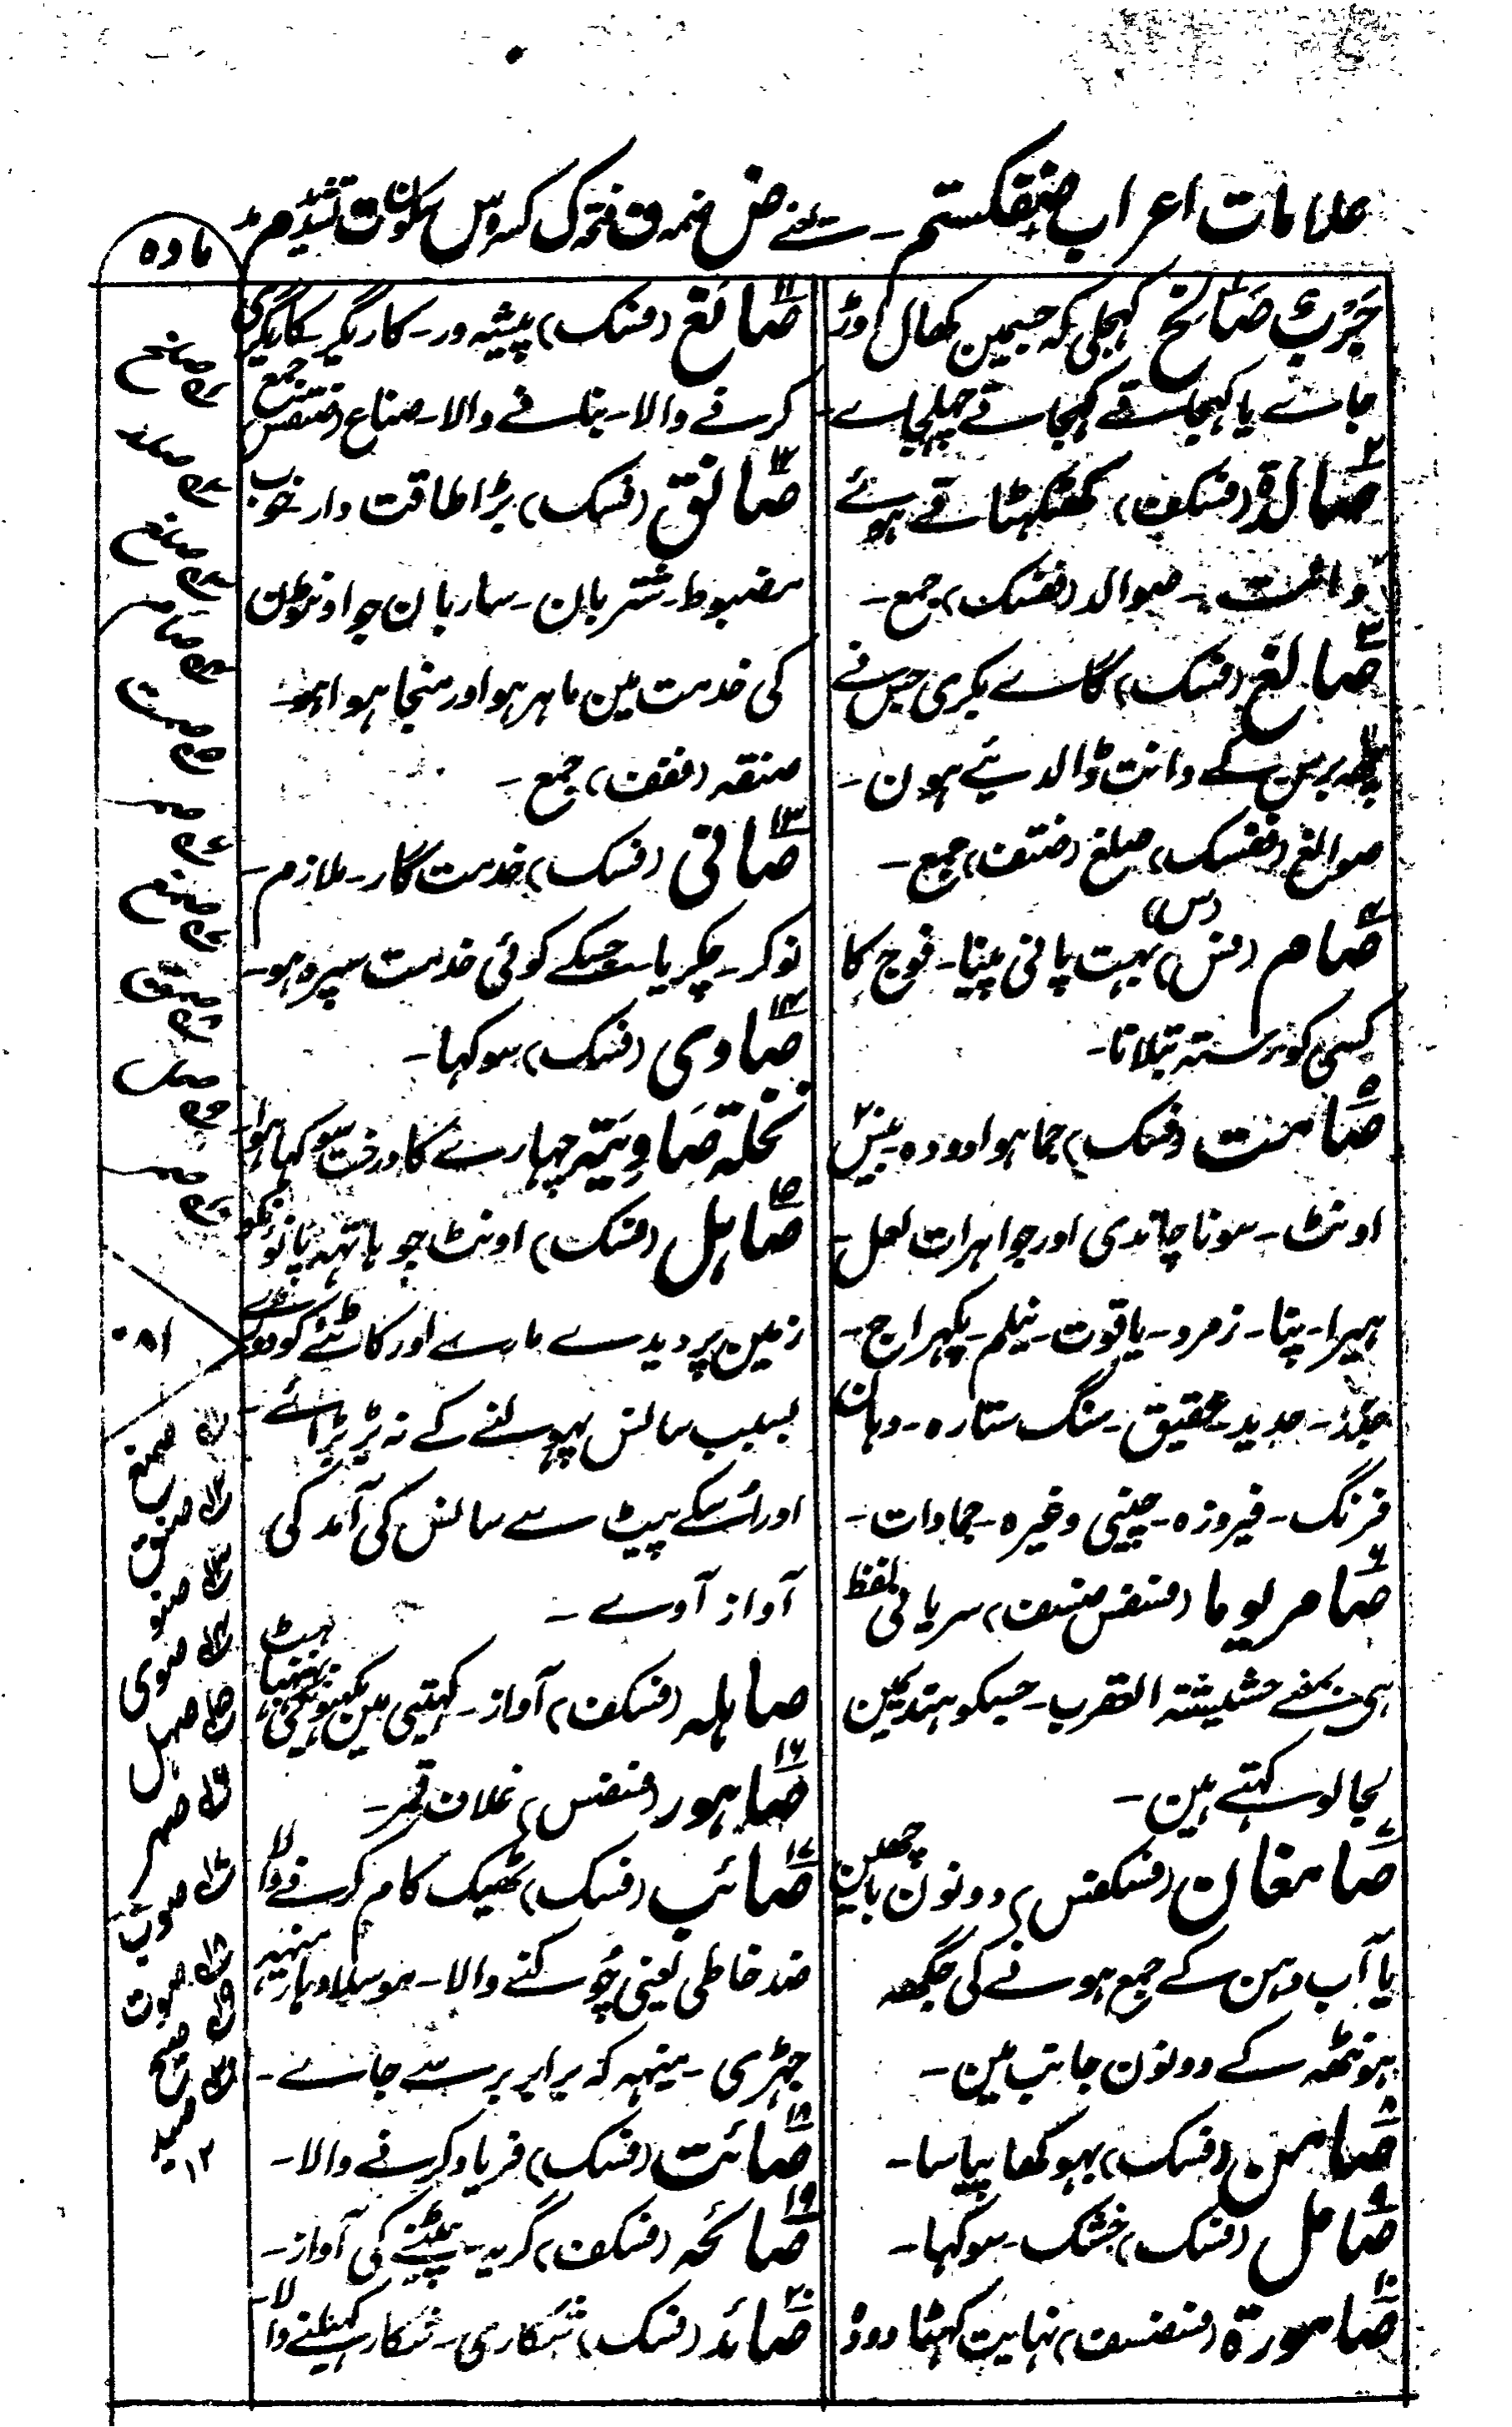 علامات اعراب ضفکستم۔ یعنے ض ضمہ ف فتحہ ک کسرہ س سکون ت تشدید م مد
مادہ
جَرْبٌ صَالِخٌ کھجلی کہ جسمین کھال اوڑ
جائے یا کھجاتے کھجاتے چھلجائے۔
۲ صالۃ (فسکف) کھٹکھٹاتے ہوئے
دانت۔ صوالہ (ففسک) جمع۔
۳ صالغ (فسک) گائے بکری جس نے
برس کے دانت ڈالدیئے ہون۔
صوالغ (ففسک) صلغ (ضتف) جمع۔
۴ صام (فس) (س) بہت پانی پینا۔ فوج کا
کسی کو رستہ بتلانا۔
۵ صامت (فسک) جما ہوا دودہ بیس ۲۰
اونٹ۔ سونا چاندی اور جواہرات لعل۔
ہیرا۔ پنا۔ زمرد۔ یاقوت۔ نیلم۔ پکھراج۔
حدید۔ عقیق۔ سنگ ستارہ۔ دہان
فرنگ۔ فیروزہ۔ چینی وغیرہ۔ جمادات۔
۶ صامریوما (فسفس ضسف) سریانی لفظ
ہی بمعنے حشیشتہ العقرب۔ جسکو ہند مین
لجالو کہتے ہین۔
۷ صامغان (فسکفس) دونون باچھین
یا آب دہن کے جمع ہونے کی جگھہ
ہونٹھہ کے دونون جانب مین۔
۸ صامن (فسک) بھوکھا پیاسا۔
۹ صامل (فسک) خشک۔ سوکھا۔
۱۰ صامورۃ (فسضسف) نہایت کھٹا دودہ
۱۱ صانع (فسک) پیشہ ور۔ کاریگر۔ کاریگری
کرنے والا۔ بنانے والا۔ صناع (ضتفس) جمع
۱۲ صانق (فسک) بڑا طاقت دار۔ خوب
مضبوط۔ شتربان۔ ساربان جو اونٹون
کی خدمت مین ماہر ہو اور منجا ہوا ہو۔
صنقہ (ففف) جمع۔
۱۳ صانی (فسک) خدمت گار۔ ملازم۔
نوکر۔ چکریا۔ جسکے کوئی خدمت سپرد ہو۔
۱۴ صاوی (فسک) سوکھا۔
نخلۃ صَاوِیَۃ چھارے کا درخت سوکھا ہوا۔
۱۵ صاہل (فسک) اونٹ جو ہاتھہ پانونکو
زمین پر دیدے مارے اور کاٹنے کو دوڑے
بسبب سانس پھولنے کے نہ بڑبڑائے۔
اور اُسکے پیٹ سے سانس کی آمد کی
آواز آوے۔
صاہلہ (فسکف) آواز۔ کھتی مین
۱۶ صاہور (فسضس) غلاف قمر۔
۱۷ صائب (فسک) ٹھیک کام کرنے والا
ضد خاطی یعنی چُوکنے والا۔ موسلادہار مینہہ
جھڑی۔ مینہہ کہ برابر برسے جائے۔
۱۸ صائت (فسک) فریاد کرنے والا۔
۱۹ صائحہ (فسکف) گریہ۔ پیٹنے کی آواز۔
۲۰ صائد (فسک) شکاری۔ شکار کھیلنے والا۔
۸۱۰
صنع
صنق
صنو
صوی
صہل
صہر
صوب
صوت
صیح
صید
۱۲